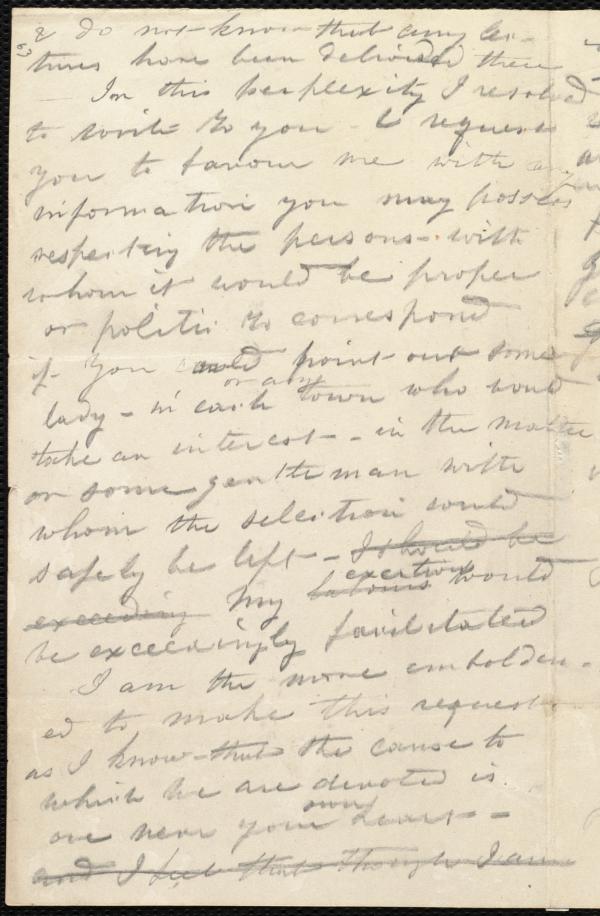 & do not know that any lec-
tures have been delivered there
— In this perplexity I resolved
to write to you - & request
you to favour me with any
information you may possess
respecting the persons - with
whom it would be proper
or politic to correspond
if you could point out some
or any
lady - in each town who would
take an interest - in the matter
or some gentleman with
whom the selection would
safely be left - I should be
exertions
exceeding My labours would
be exceedingly facilitated
I am the more embolden-
ed to make this request
as I know that the cause to
which we are devoted is
own
one near your heart -
and I feel that though I am